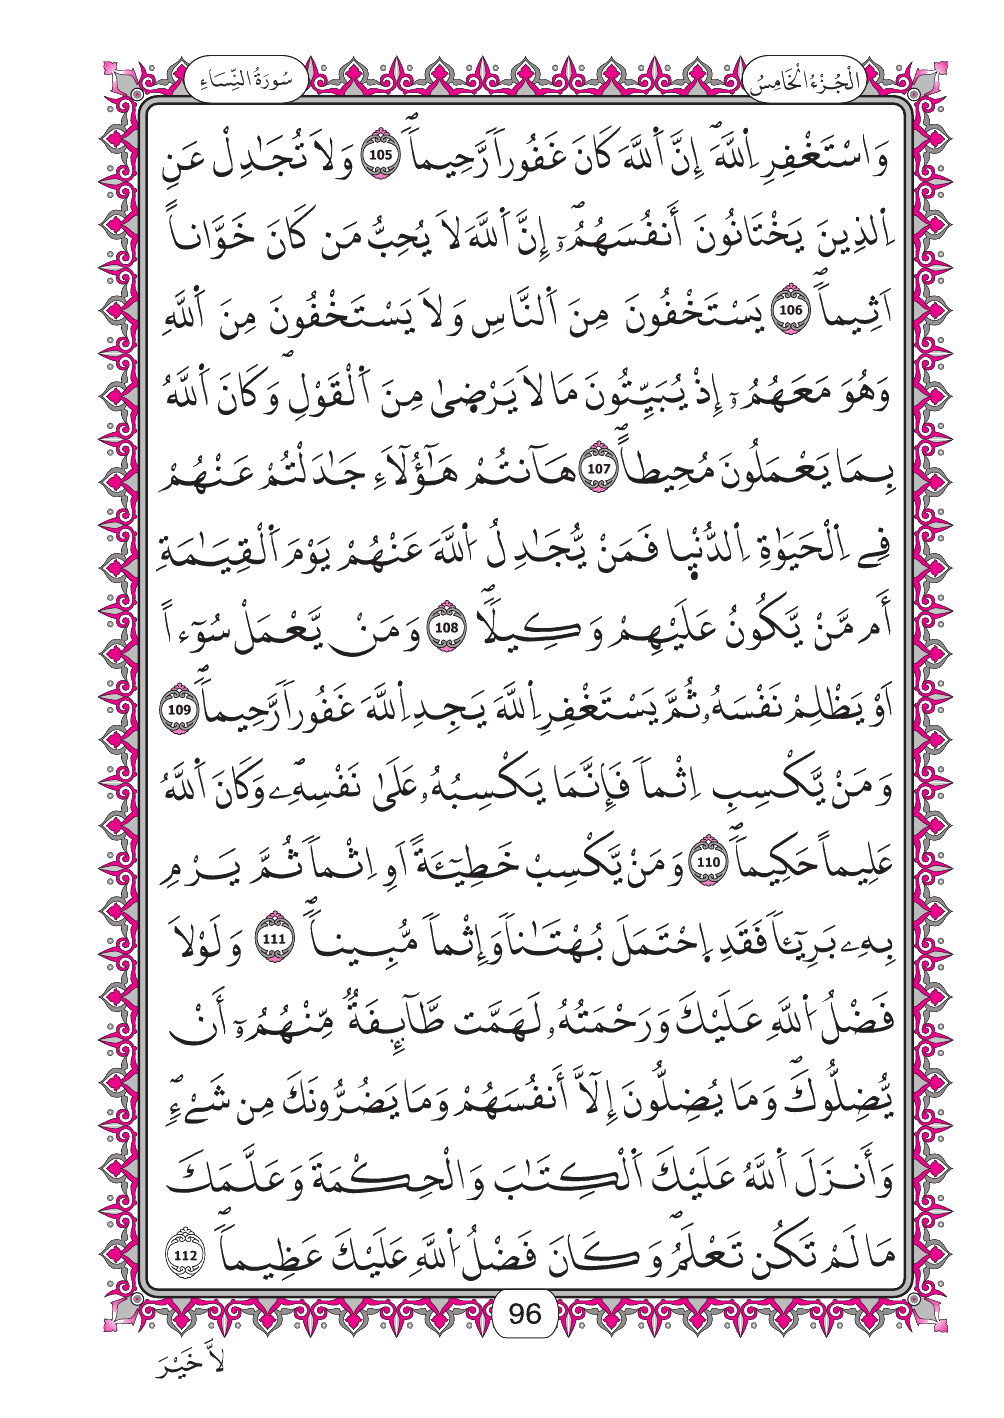 الْجُزْءُ الْخَامِسُ
سُورَةُ النِّسَاءِ
وَاسْتَغْفِرِ اِ۬للَّهَۖ إِنَّ اَ۬للَّهَ كَانَ غَفُوراٗ رَّحِيماٗۖ 105 وَلَا تُجَٰدِلْ عَنِ
اِ۬لذِينَ يَخْتَانُونَ أَنفُسَهُمُۥٓۖ إِنَّ اَ۬للَّهَ لَا يُحِبُّ مَن كَانَ خَوَّاناً
اَثِيماٗۖ 106 يَسْتَخْفُونَ مِنَ اَ۬لنَّاسِ وَلَا يَسْتَخْفُونَ مِنَ اَ۬للَّهِ
وَهُوَ مَعَهُمُۥٓ إِذْ يُبَيِّتُونَ مَا لَا يَرْضَىٰ مِنَ اَ۬لْقَوْلِۖ وَكَانَ اَ۬للَّهُ
بِمَا يَعْمَلُونَ مُحِيطاًۖ 107 هَآنتُمْ هَٰٓؤُلَآءِ جَٰدَلْتُمْ عَنْهُمْ
فِے اِ۬لْحَيَوٰةِ اِ۬لدُّنْيَا فَمَنْ يُّجَٰدِلُ اُ۬للَّهَ عَنْهُمْ يَوْمَ اَ۬لْقِيَٰمَةِ
أَم مَّنْ يَّكُونُ عَلَيْهِمْ وَكِيلاٗۖ 108 وَمَنْ يَّعْمَلْ سُوٓءاً
اَوْ يَظْلِمْ نَفْسَهُۥ ثُمَّ يَسْتَغْفِرِ اِ۬للَّهَ يَجِدِ اِ۬للَّهَ غَفُوراٗ رَّحِيماٗۖ 109
وَمَنْ يَّكْسِبِ اِثْماٗ فَإِنَّمَا يَكْسِبُهُۥ عَلَىٰ نَفْسِهِۦۖ وَكَانَ اَ۬للَّهُ
عَلِيماً حَكِيماٗۖ 110 وَمَنْ يَّكْسِبْ خَطِيٓـَٔةً اَوِ اِثْماٗ ثُمَّ يَرْمِ
بِهِۦ بَرِيٓـٔاٗ فَقَدِ اِ۪حْتَمَلَ بُهْتَٰناٗ وَإِثْماٗ مُّبِيناٗۖ 111 وَلَوْلَا
فَضْلُ اُ۬للَّهِ عَلَيْكَ وَرَحْمَتُهُۥ لَهَمَّت طَّآئِفَةٞ مِّنْهُمُۥٓ أَنْ
يُّضِلُّوكَۖ وَمَا يُضِلُّونَ إِلَّآ أَنفُسَهُمْ وَمَا يَضُرُّونَكَ مِن شَےْءٖۖ
وَأَنزَلَ اَ۬للَّهُ عَلَيْكَ اَ۬لْكِتَٰبَ وَالْحِكْمَةَ وَعَلَّمَكَ
مَا لَمْ تَكُن تَعْلَمُۖ وَكَانَ فَضْلُ اُ۬للَّهِ عَلَيْكَ عَظِيماٗۖ 112
96
لَّا خَيْرَ